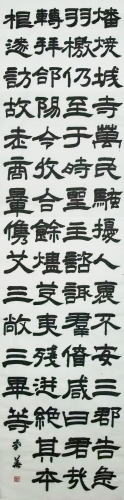 燔燒城寺萬民騷擾人裹不安三郡告急
羽檄仍至于時聖主諮諏群僚咸曰君哉
轉拜郃陽令收合餘燼芟夷殘迸絕其本
根遂訪故老商量儁艾王敞王畢等